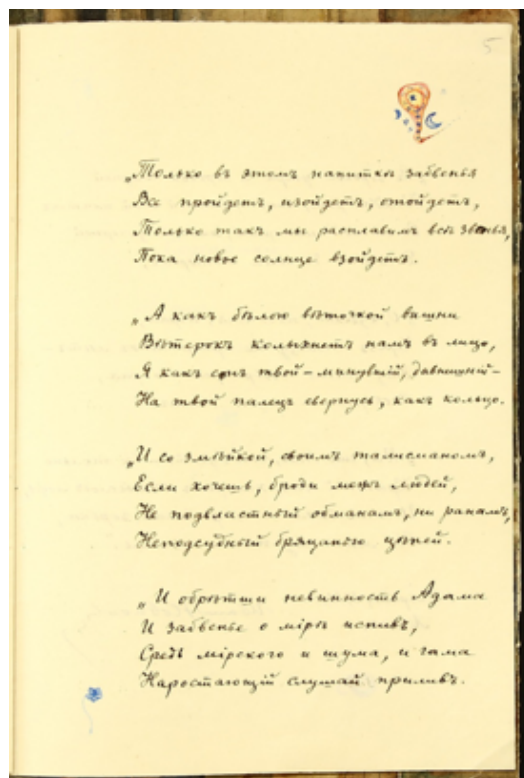 5
„Только въ этомъ напиткѣ забвенья
Все пройдетъ, изойдетъ, отойдетъ,
Только такъ мы расплавимъ всѣ звенья,
Пока новое солнце взойдетъ.
„А какъ бѣлою вѣточкой вишни
Вѣтерокъ колыхнетъ намъ въ лицо,
Я какъ сонъ твой – минувшій, давнишній –
На твой палецъ свернусь, какъ кольцо.
„И со змѣйкой, своимъ талисманомъ,
Если хочешь, броди межъ людей,
Не подвластный обманамъ, ни ранамъ,
Неподсудный бряцанью цѣпей.
„И обрѣтши невинность Адама
И забвенье о мірѣ испивъ,
Средь мірского и шума, и гама
Наростающій слушай приливъ.